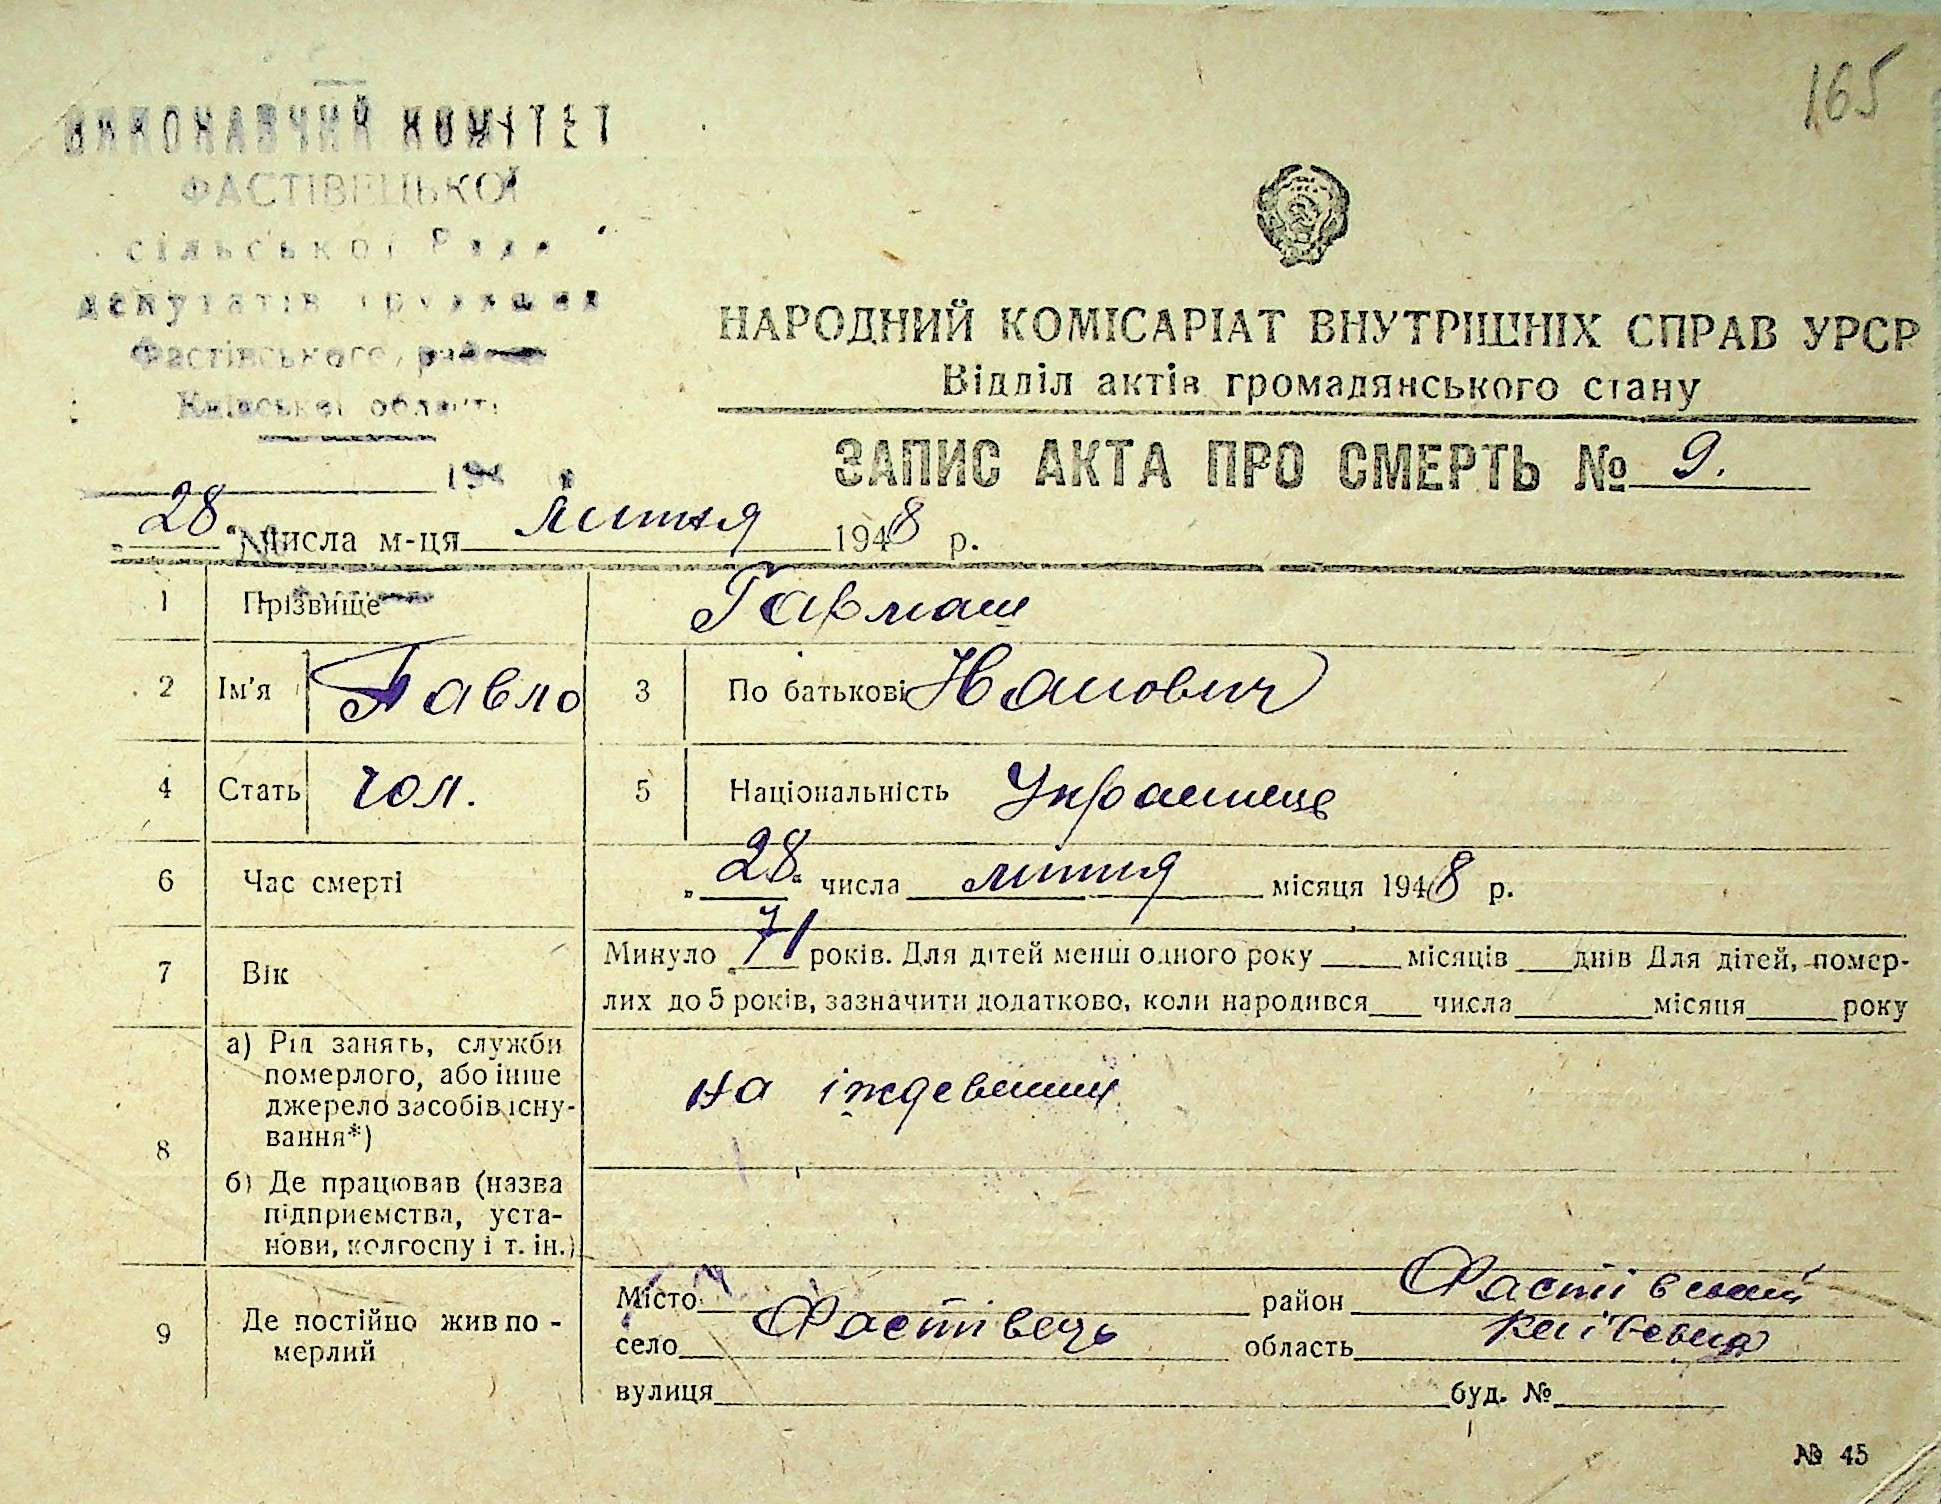 165
ВИКОНАВЧИЙ КОМІТЕТ
ФАСТІВЕЦЬКОЇ
сільської Ради
депутатів трудящих
Фастівського району
Київської області
194
НАРОДНИЙ КОМІСАРІАТ ВНУТРІШНІХ СПРАВ УРСР
Відділ актів громадянського стану
ЗАПИС АКТА ПРО СМЕРТЬ № 9.
„28“ числа м-ця липня 1948 р.
1 Прізвище Гармаш
2 Ім'я Павло 3 По батькові Іванович
4 Стать чол. 5 Національність Українець
6 Час смерті „28“ числа липня місяця 1948 р.
7 Вік Минуло 71 років. Для дітей менш одного року місяців днів Для дітей, помер-
лих до 5 років, зазначити додатково, коли народився числа місяця року
8 а) Рід занять, служби
померлого, або інше
джерело засобів існу-
вання*)
на іждевенії
б) Де працював (назва
підприємства, уста-
нови, колгоспу і т. ін.)
9 Де постійно жив по-
мерлий
Місто район Фастівський
село Фастівець область Київська
вулиця буд. №
№ 45